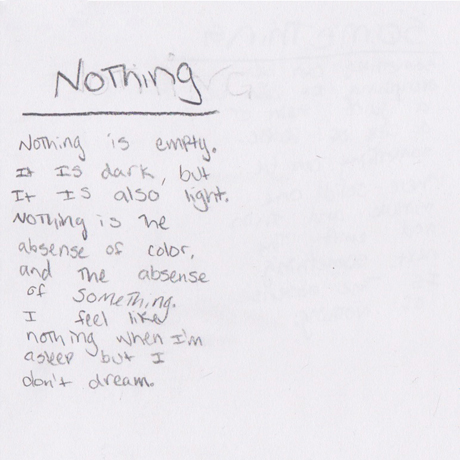 Nothing
Nothing is empty.
It Is dark, but
It Is also light.
Nothing is the
absense of color,
and the absense
of something.
I feel like
nothing when I'm
asleep but I
don't dream.